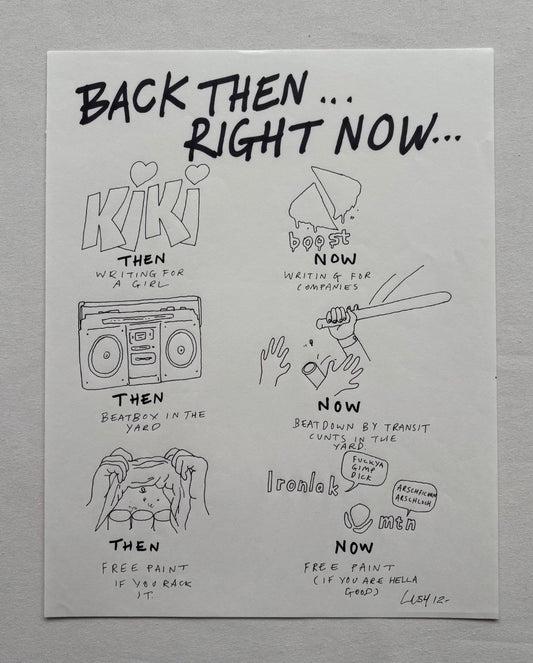 BACK THEN...
RIGHT NOW...
KiKi
THEN
WRITING FOR
A GIRL
boost
NOW
WRITING FOR
COMPANIES
THEN
BEATBOX IN THE
YARD
NOW
BEATDOWN BY TRANSIT
CUNTS IN THE
YARD.
THEN
FREE PAINT
IF YOU RACK
IT.
Ironlak
FUCKYA
GIMP
DICK
mtn
ARSCHLOCH
NOW
FREE PAINT
(IF YOU ARE HELLA
GOOD)